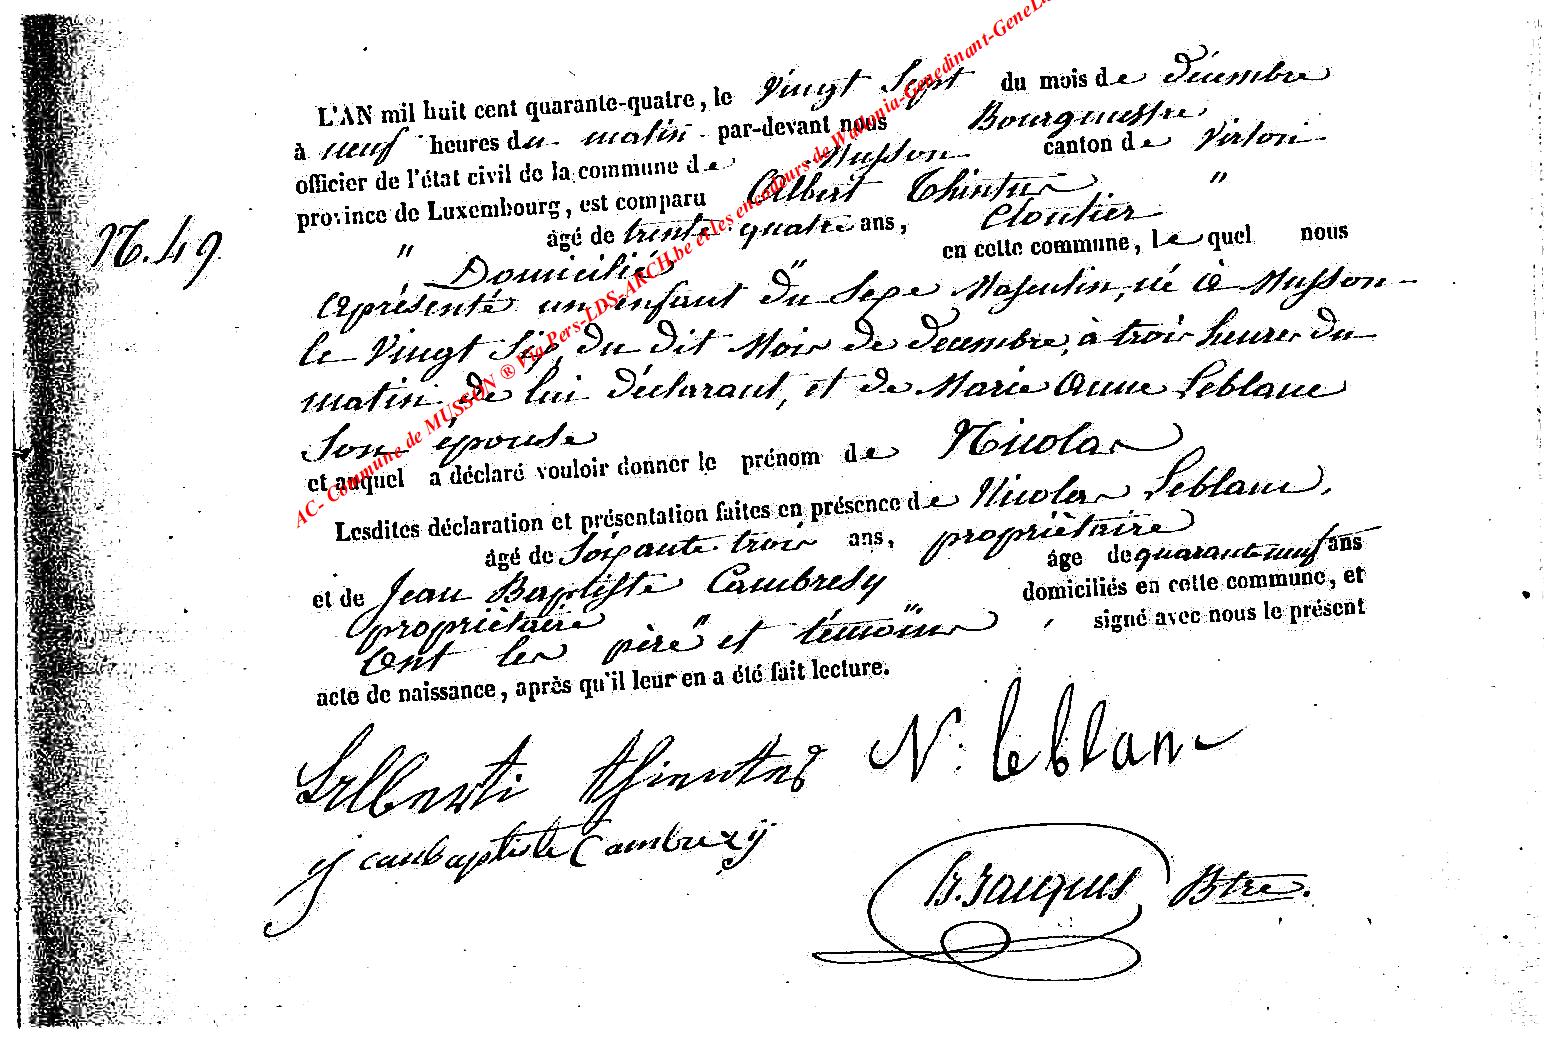 L'AN mil huit cent quarante-quatre, le Vingt Sept du mois de décembre
à neuf heures du matin par-devant nous Bourgmestre
officier de l'état civil de la commune de Musson canton de Virton
province de Luxembourg, est comparu Albert Thintus "
N. 49
" âgé de trente quatre ans, Cloutier
Domicilié " en cette commune, le quel nous
a présenté un enfant du Sexe Masculin, né à Musson
le Vingt Six, du dit Mois de décembre, à trois heures du
matin de lui déclarant, et de Marie Anne Leblanc
Son épouse
et auquel a déclaré vouloir donner le prénom de Nicolas
Lesdites déclaration et présentation faites en présence de Nicolas Leblanc,
âgé de Soixante trois ans, propriètaire
et de Jean Baptiste Cambresy âge de quarante neuf ans
propriètaire domiciliés en cette commune, et
Ont les père et témoins, signé avec nous le présent
acte de naissance, après qu'il leur en a été fait lecture.
Albert thientes N. leblanc
jeanbaptiste Cambrezÿ
Jacques Btre.
AC- Commune de MUSSON ® Via Pers-LDS-ARCH.be et les encodeurs de Wallonia-Genedinant-GeneLu